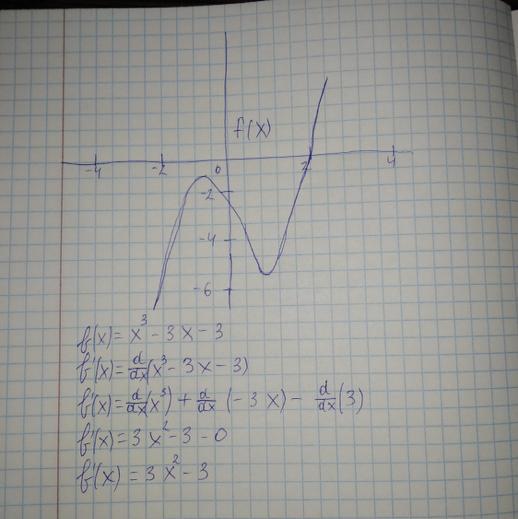 f(x)
-4 -2 0 2 4
-2
-4
-6
f(x) = x³ - 3x - 3
f'(x) = d/dx(x³ - 3x - 3)
f'(x) = d/dx(x³) + d/dx (-3x) - d/dx(3)
f'(x) = 3x² - 3 - 0
f'(x) = 3x² - 3